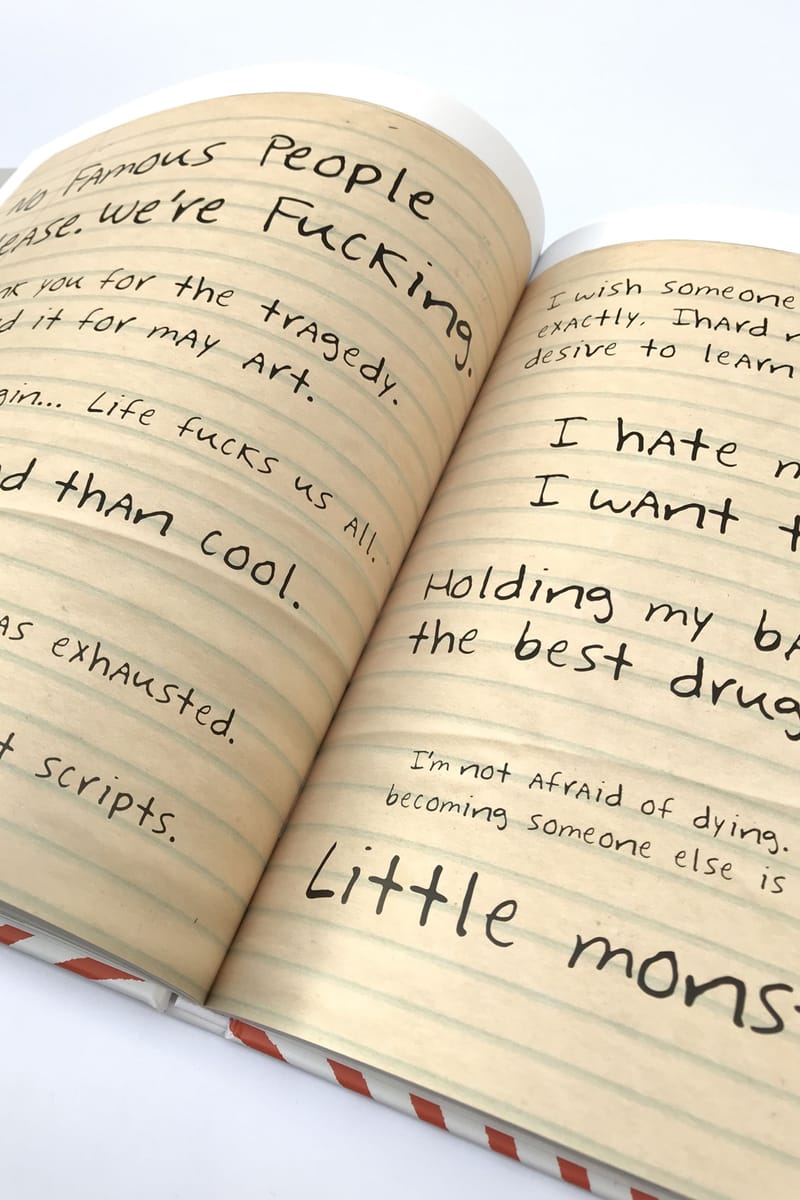 NO FAMOUS PEOPLE
EASE. WE'RE FUCKING.
NK YOU FOR THE TRAGEDY.
d it for MAY ART.
gin... Life fucks us All.
d thAn cool.
AS exhAusted.
t scripts.
I wish someone
exActly. IhArd
desive to leArn
I hAte
I wAnt
Holding my bA
the best drug
I'm not AfrAid of dying.
becoming someone else is
Little mons